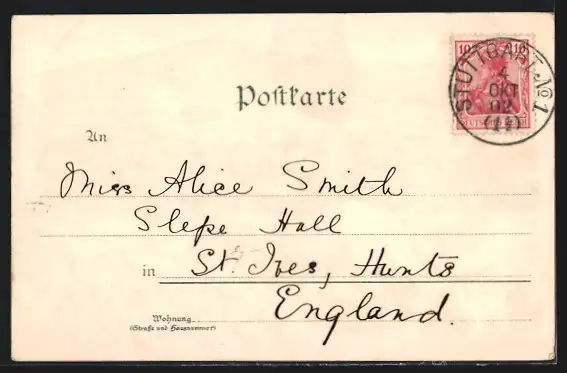 10 10
STUTTGART No 1
4
OKT
02
(11)
Postkarte
An
Miss Alice Smith
Slepe Hall
in St. Ives, Hunts
England.
Wohnung
(Straße und Hausnummer)